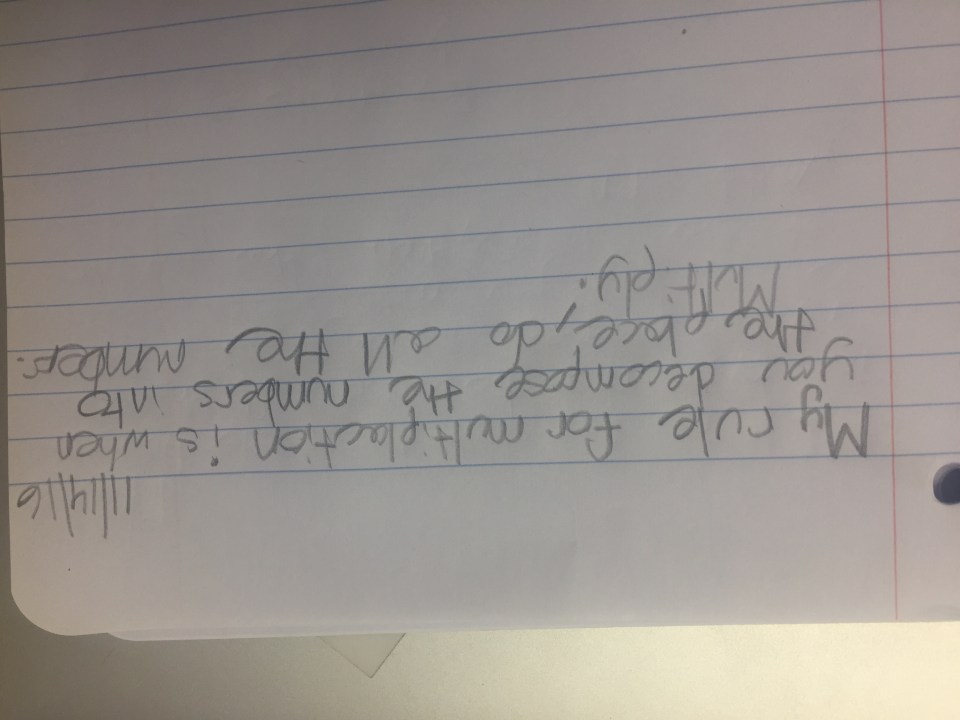 11/14/16
My rule for multiplection is when
you decompose the numbers into
the plece, do all the numbers.
Multiply.